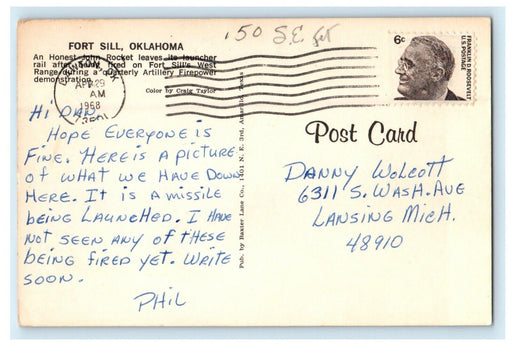 .50 S.E.
6c
U.S. POSTAGE
FRANKLIN D. ROOSEVELT
FORT SILL, OKLAHOMA
An Honest John Rocket leaves its launcher
rail after being fired on Fort Sill's West
Range during a quarterly Artillery Firepower
demonstration.
Color by Craig Taylor
APR 29
AM
1968
Pub. by Baxter Lane Co., 1401 N. E. 3rd, Amarillo, Texas
Post Card
Hi Dan,
Hope Everyone is
Fine. Here is a picture
of what we have Down
Here. It is a missile
being Launched. I Have
not seen any of these
being fired yet. Write
soon.
Phil
Danny Wolcott
6311 S. Wash. Ave
Lansing Mich.
48910